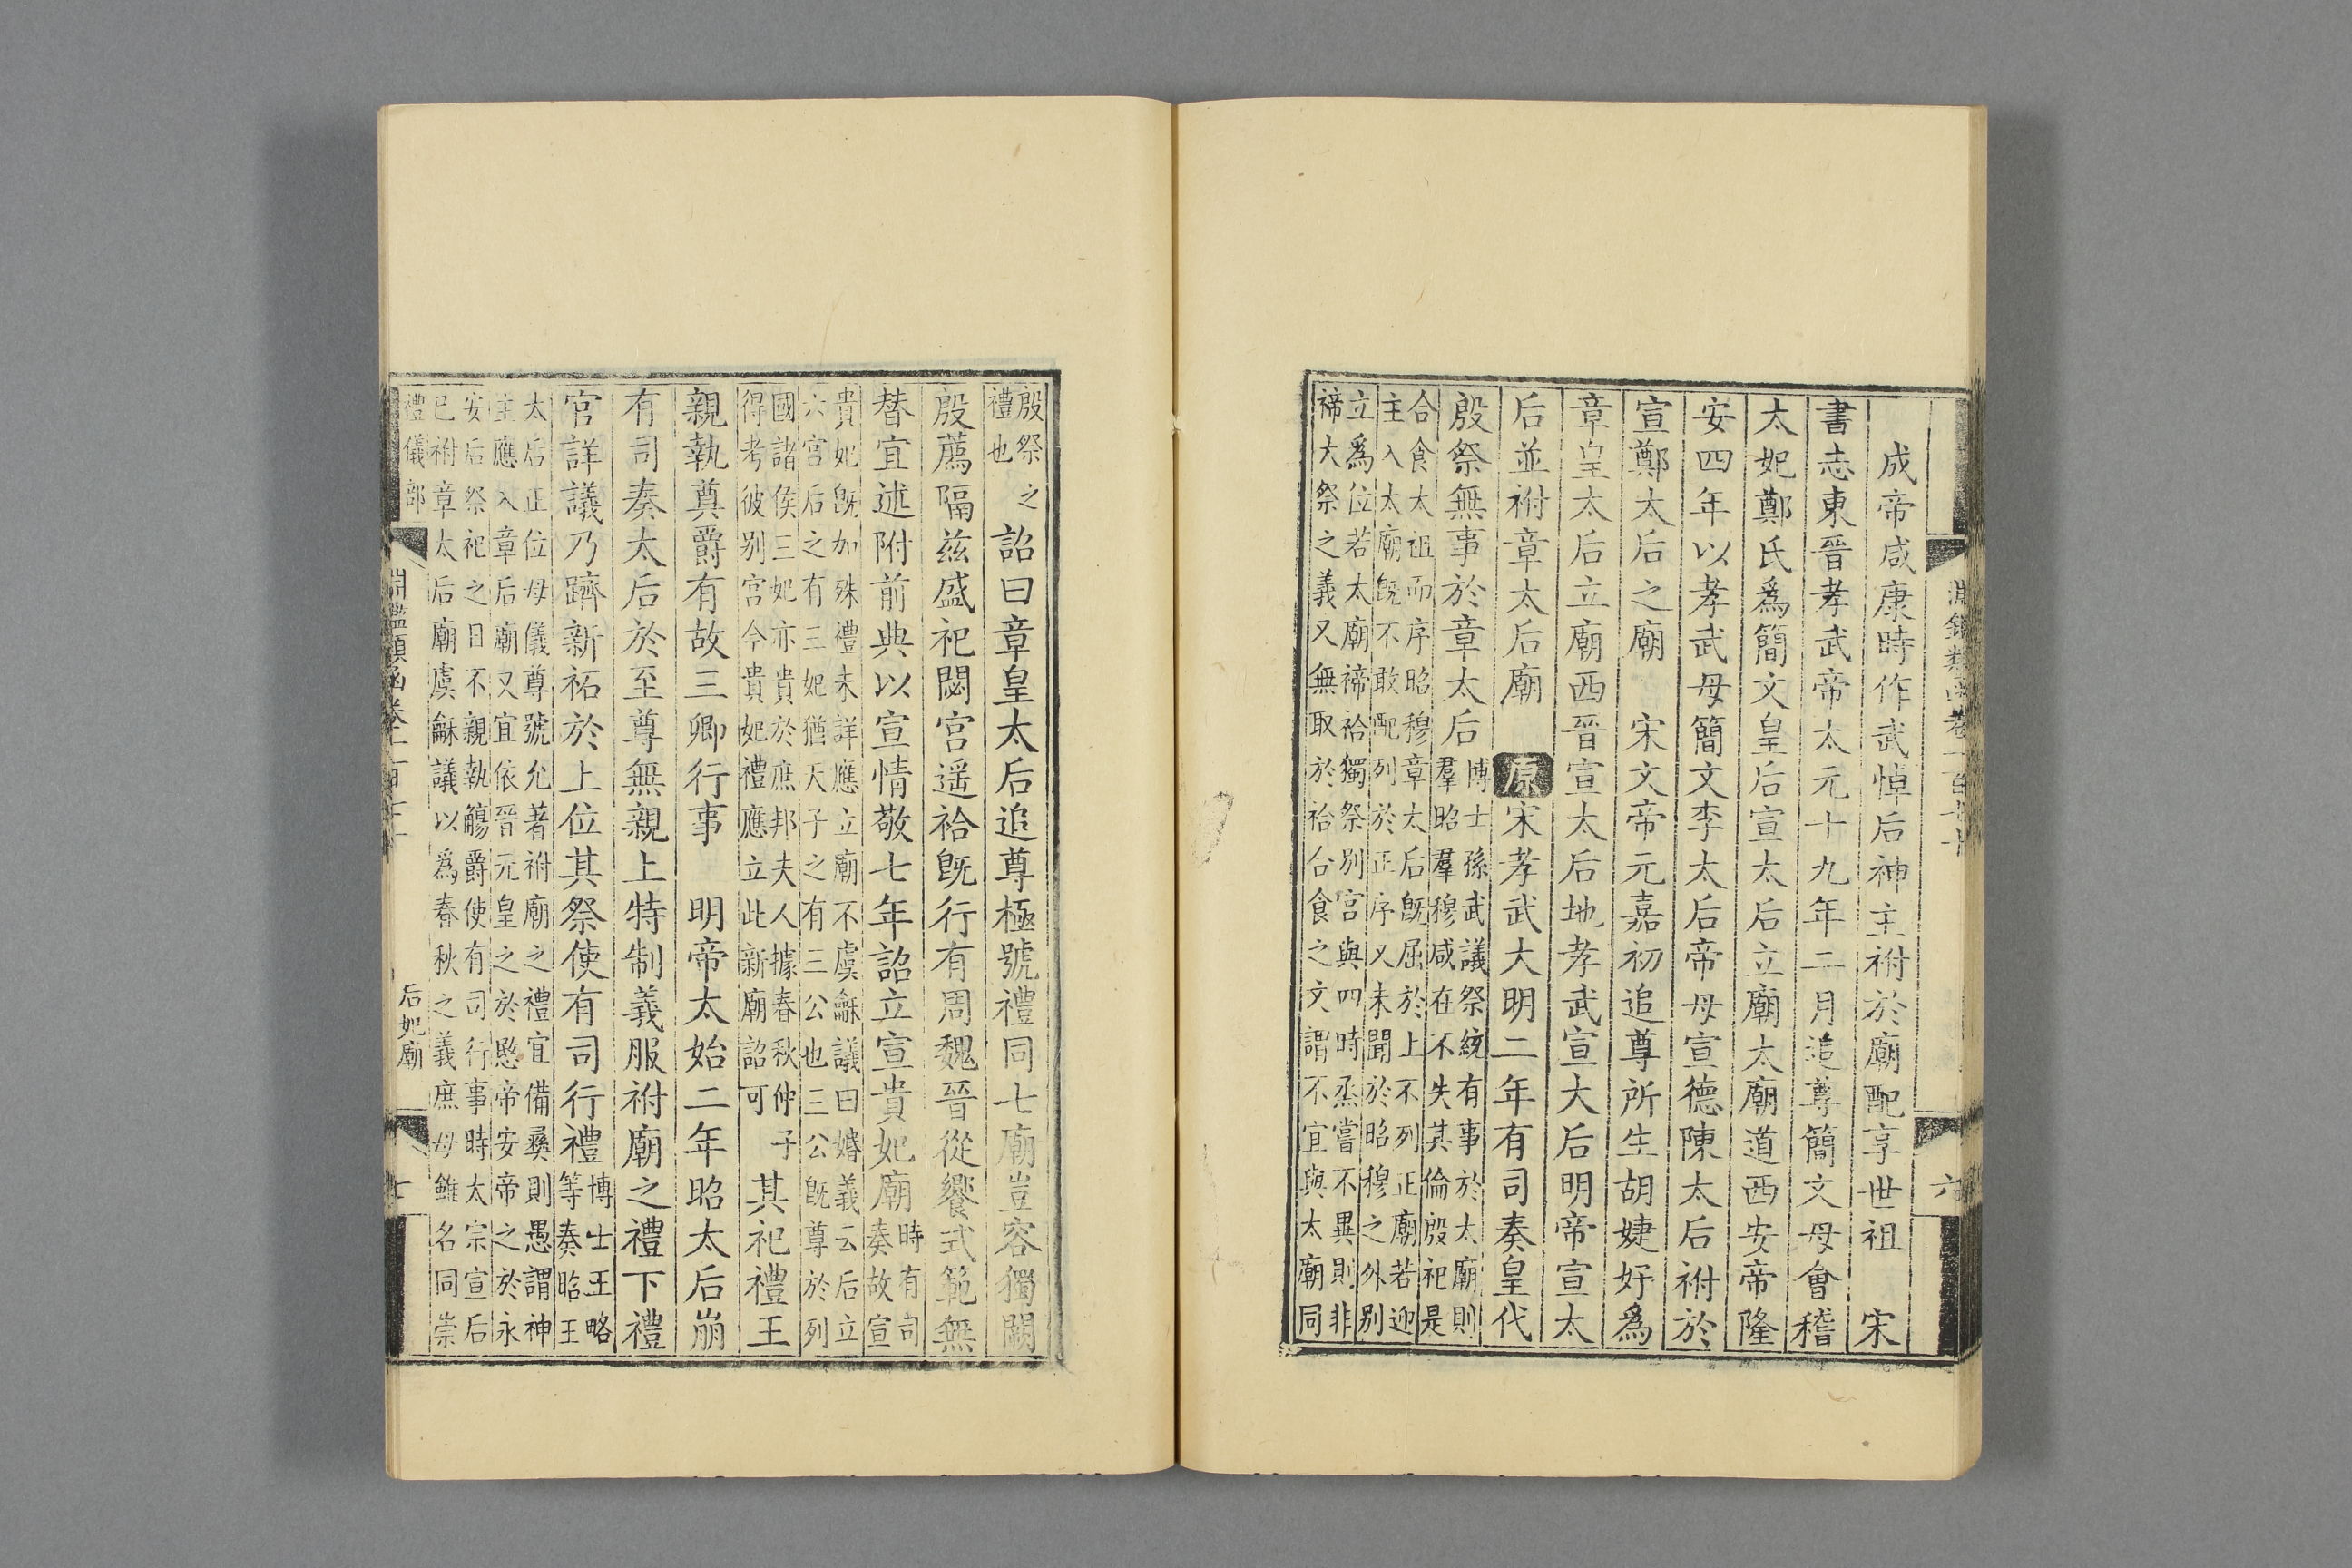 成帝咸康時作武悼后神主祔於廟配享世祖　宋
書志東晉孝武帝太元十九年二月追尊簡文母會稽
太妃鄭氏爲簡文皇后宣太后立廟太廟道西安帝隆
安四年以孝武母簡文李太后帝母宣德陳太后祔於
宣鄭太后之廟　宋文帝元嘉初追尊所生胡婕妤爲
章皇太后立廟西晉宣太后地孝武宣太后明帝宣太
后並祔章太后廟　原宋孝武大明二年有司奏皇代
殷祭無事於章太后
博士孫武議祭統有事於太廟則
羣昭羣穆咸在不失其倫殷祀是
合食太祖而序昭穆章太后既屈於上不列正廟若迎
主入太廟既不敢配列於正序又未聞於昭穆之外別
立爲位若太廟禘祫獨祭別宮與四時烝嘗不異則非
禘大祭之義又無取於祫合食之文謂不宜與太廟同
六
殷祭之
禮也
詔曰章皇太后追尊極號禮同七廟豈容獨闕
殷薦隔茲盛祀閟宮遥祫既行有周魏晉從饗式範無
替宜述附前典以宣情敬七年詔立宣貴妃廟
時有司
奏故宣
貴妃既加殊禮未詳應立廟不虞龢議曰婚義云后立
六宮后之有三妃猶天子之有三公也三公既尊於列
國諸侯三妃亦貴於庶邦夫人據春秋仲子
得考彼別宮今貴妃禮應立此新廟詔可
其祀禮王
親執奠爵有故三卿行事　明帝太始二年昭太后崩
有司奏太后於至尊無親上特制義服祔廟之禮下禮
官詳議乃躋新祏於上位其祭使有司行禮
博士王略
等奏晧王
太后正位母儀尊號允著祔廟之禮宜備彝則愚謂神
主應入章后廟又宜依晉元皇之於愍帝安帝之於永
安后祭祀之日不親執觴爵使有司行事時太宗宣后
已祔章太后廟虞龢議以爲春秋之義庶母雖名同崇
禮儀部
淵鑑類函卷一百七十
后妃廟
七